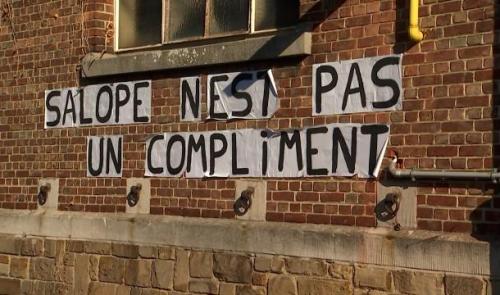 SALOPE N'EST PAS
UN COMPLiMENT